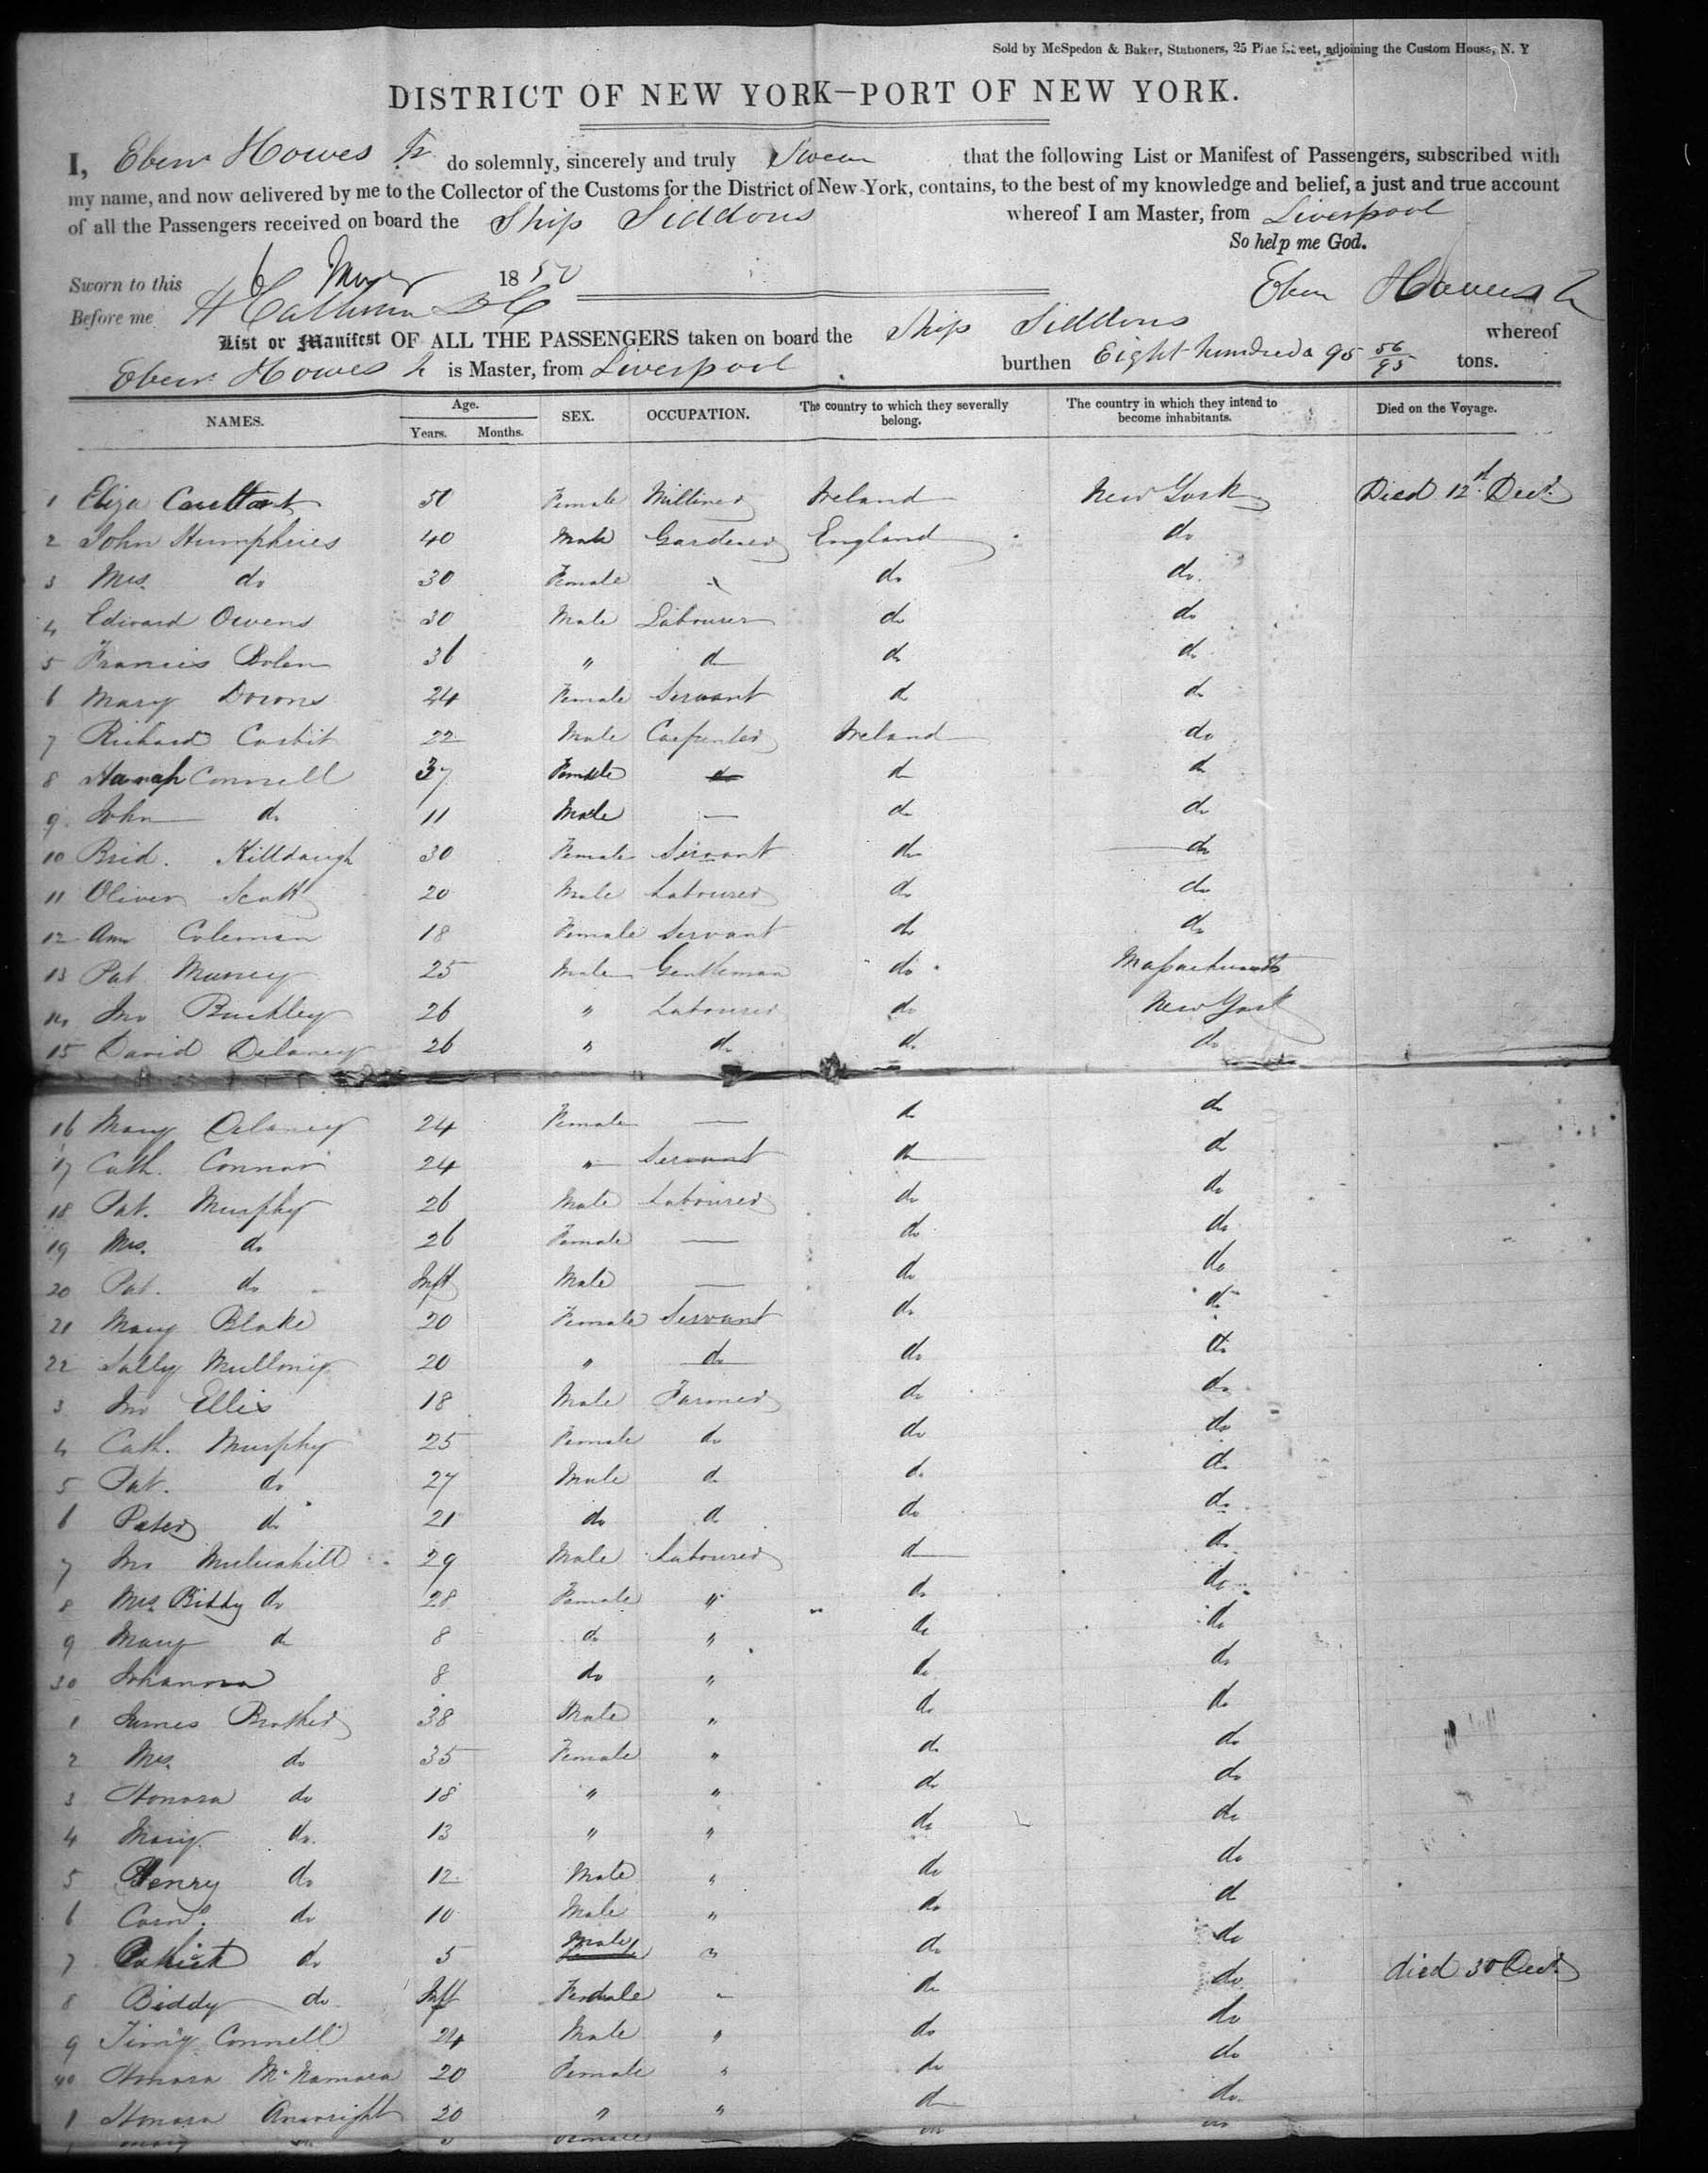 Sold by McSpedon & Baker, Stationers, 25 Pine Street, adjoining the Custom House, N. Y
DISTRICT OF NEW YORK—PORT OF NEW YORK.
I, Eben Howes Jr do solemnly, sincerely and truly Swear that the following List or Manifest of Passengers, subscribed with
my name, and now delivered by me to the Collector of the Customs for the District of New York, contains, to the best of my knowledge and belief, a just and true account
of all the Passengers received on board the Ship Siddons whereof I am Master, from Liverpool
So help me God.
Sworn to this 6 1850
Before me Eben Howes Jr
List or Manifest OF ALL THE PASSENGERS taken on board the Ship Siddons whereof
Eben Howes Jr is Master, from Liverpool burthen Eight hundred & 95 56/95 tons.
NAMES. Age. Years. Months. SEX. OCCUPATION. The country to which they severally belong. The country in which they intend to become inhabitants. Died on the Voyage.
1 Eliza 50 Female Milliner Ireland New York Died 12th Dec.
2 John Humphries 40 Male Gardener England do
3 Mrs. do 30 Female do do
4 Edward Owens 30 Male Labourer do do
5 Francis Bolen 36 " do do do
6 Mary Downs 24 Female Servant do do
7 Richard Corbit 22 Male Carpenter Ireland do
8 Hanah Connell 37 Female do do do
9 John do 11 Male — do do
10 Brid. Killdaugh 30 Female Servant do do
11 Oliver Scott 20 Male Labourer do do
12 Ann Coleman 18 Female Servant do do
13 Pat Muncy 25 Male Gentleman do Massachusetts
14 Jno Buckley 26 " Labourer do New York
15 David Delaney 26 " do do do
16 Mary Delaney 24 Female — do do
17 Cath. Connor 24 " Servant do do
18 Pat. Murphy 26 Male Labourer do do
19 Mrs. do 26 Female — do do
20 Pat. do Inft Male — do do
21 Mary Blake 20 Female Servant do do
22 Sally Mulloney 20 " do do do
3 Jno Ellis 18 Male Farmer do do
4 Cath. Murphy 25 Female do do do
5 Pat. do 27 Male do do do
6 Peter do 21 do do do do
7 Jno Mulcahill 29 Male Labourer do do
8 Mrs. Biddy do 28 Female " do do
9 Mary do 8 do " do do
30 Johanna 8 do " do do
1 James Brother 38 Male " do do
2 Mrs. do 35 Female " do do
3 Honora do 18 " " do do
4 Mary do. 13 " " do do
5 Henry do 12 Male " do do
6 Corns. do 10 Male " do do
7 Patrick do 5 Male " do do
8 Biddy do Inft Female do do died 30 Dec.
9 Timy Connell 24 Male " do do
40 Honora McNamara 20 Female " do do
1 Honora 20 " " do do